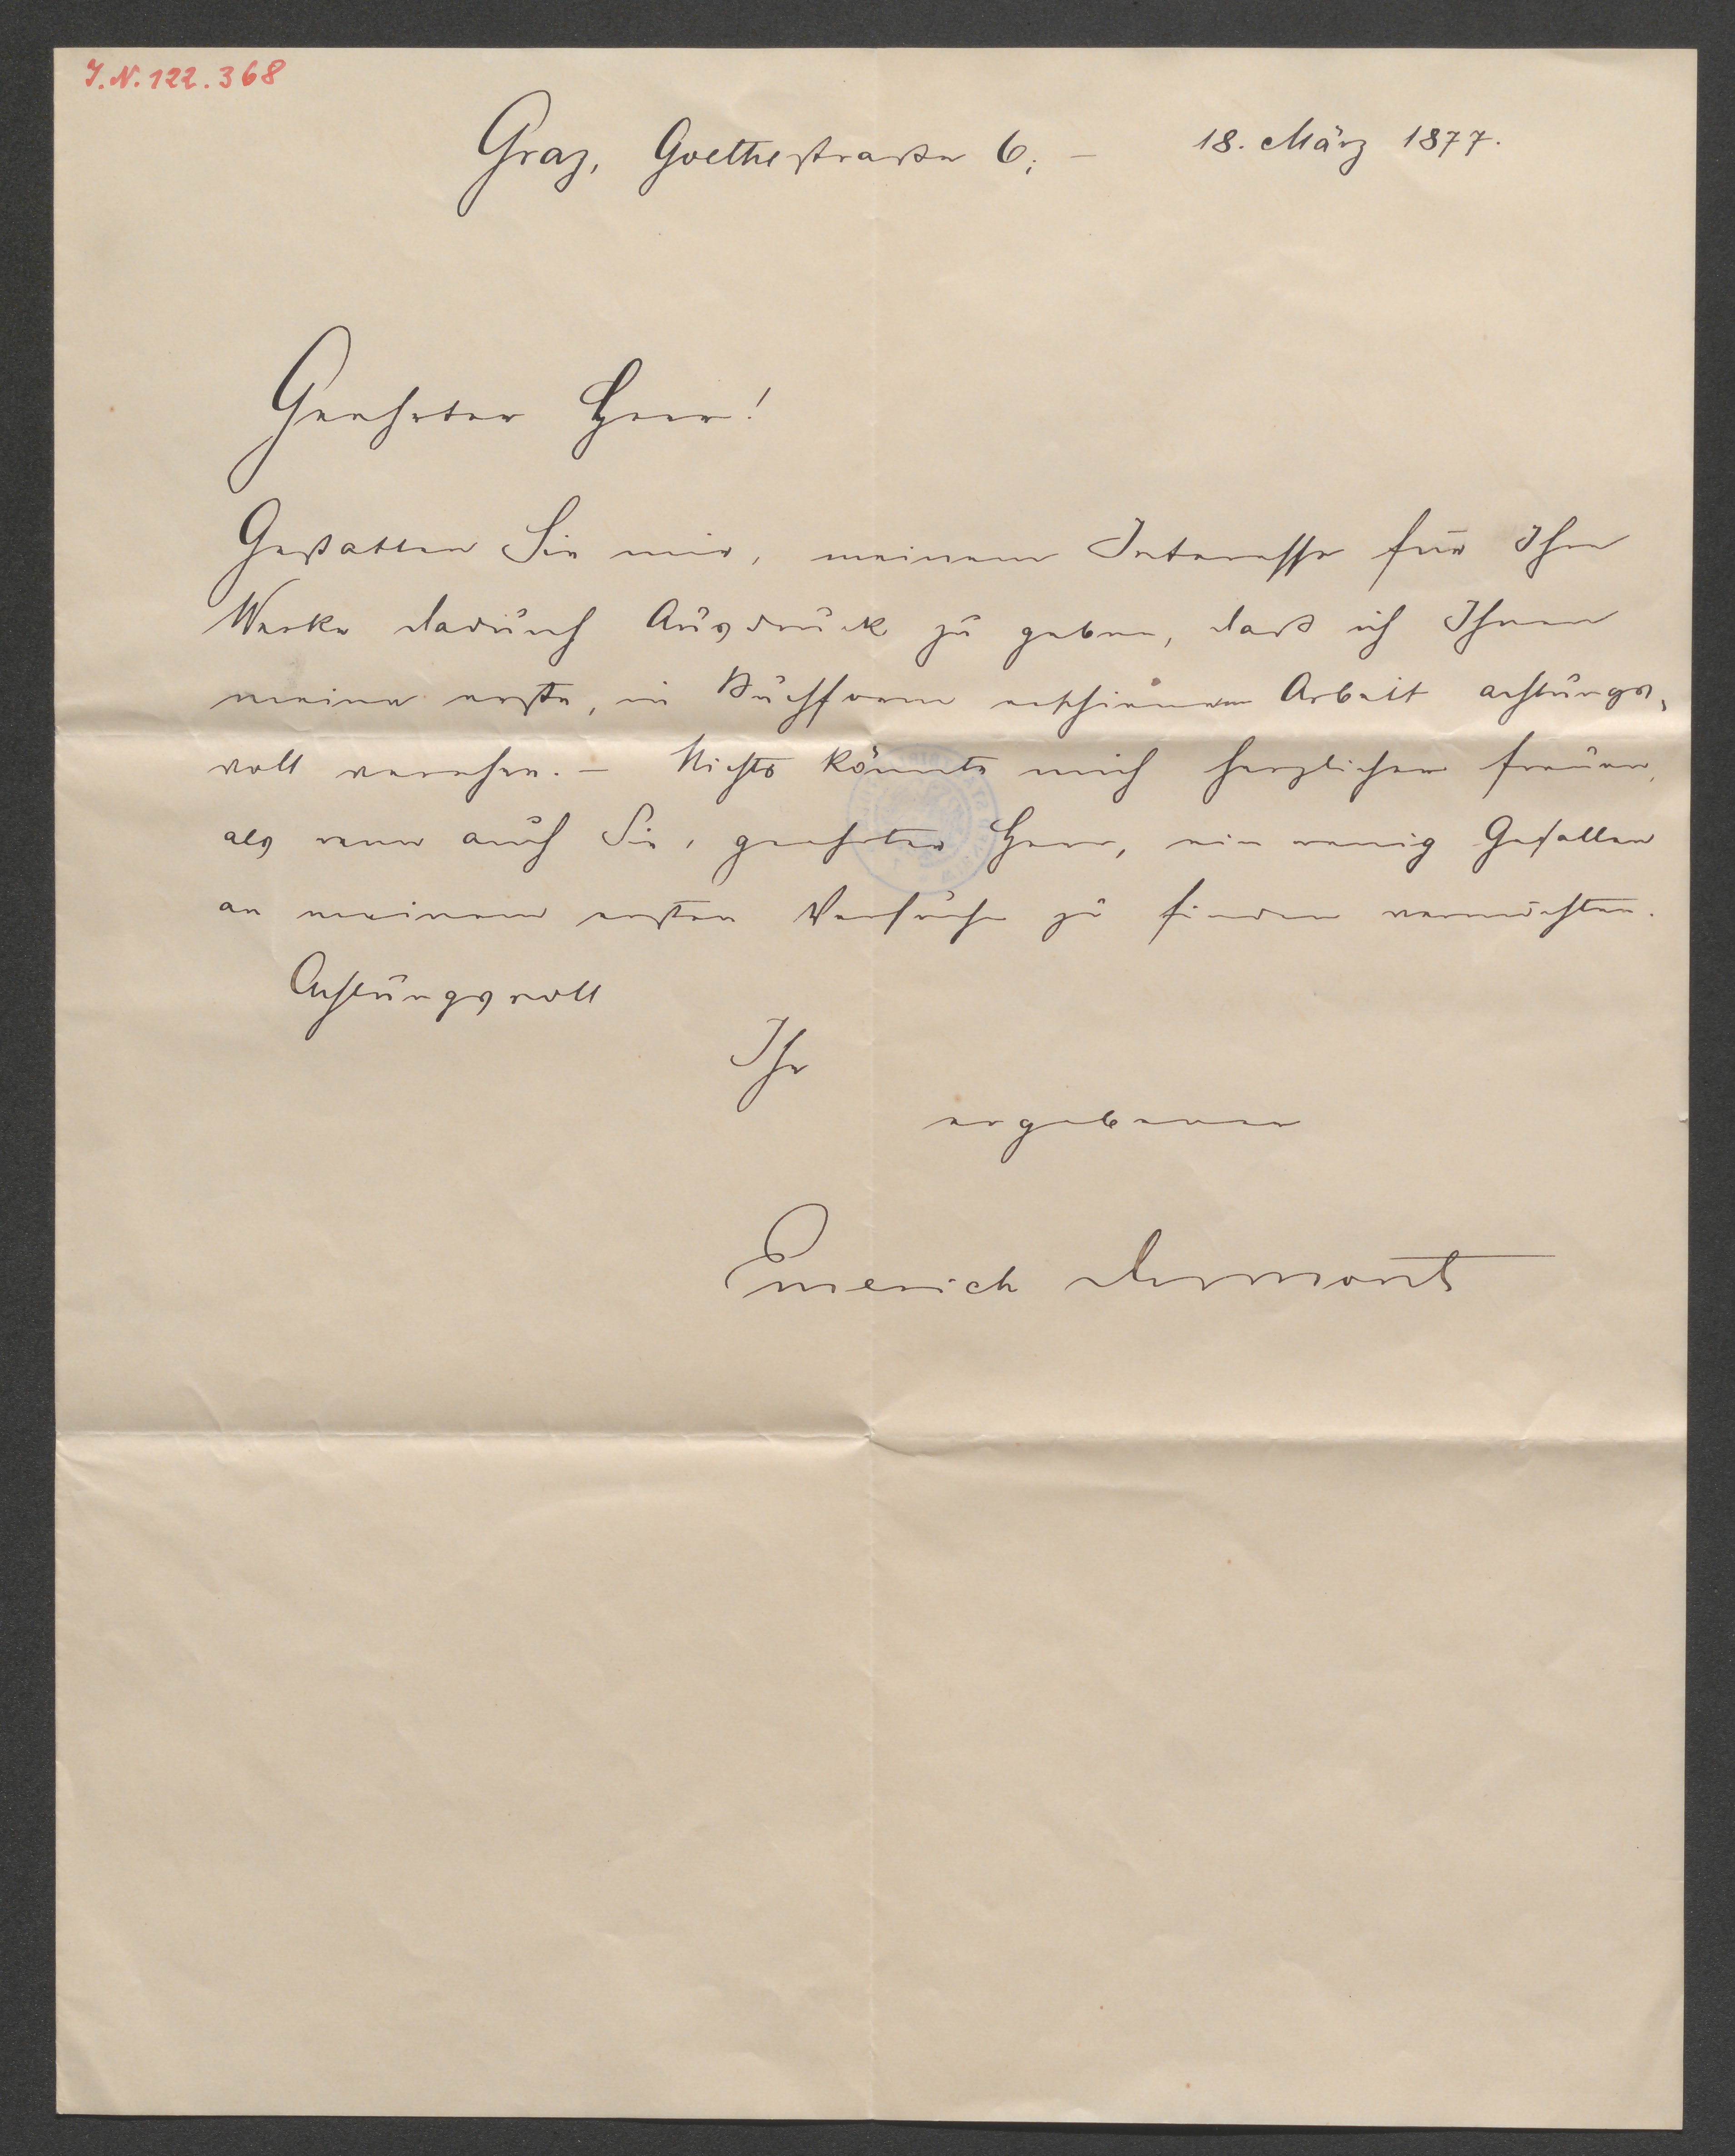 J.N. 122.368
Graz, Goethestraße 6; – 18. März 1877.
Geehrter Herr!
Gestatten Sie mir, meinem Interesse für Ihre
Werke dadurch Ausdruck zu geben, daß ich Ihnen
meine erste, in Buchform erschienene Arbeit achtungs-
voll verehre. – Nichts könnte mich herzlicher freuen,
als wenn auch Sie, geehrter Herr, ein wenig Gefallen
an meinem ersten Versuche zu finden vermöchten.
Achtungsvoll
Ihr
ergebener
Emerich Dumont